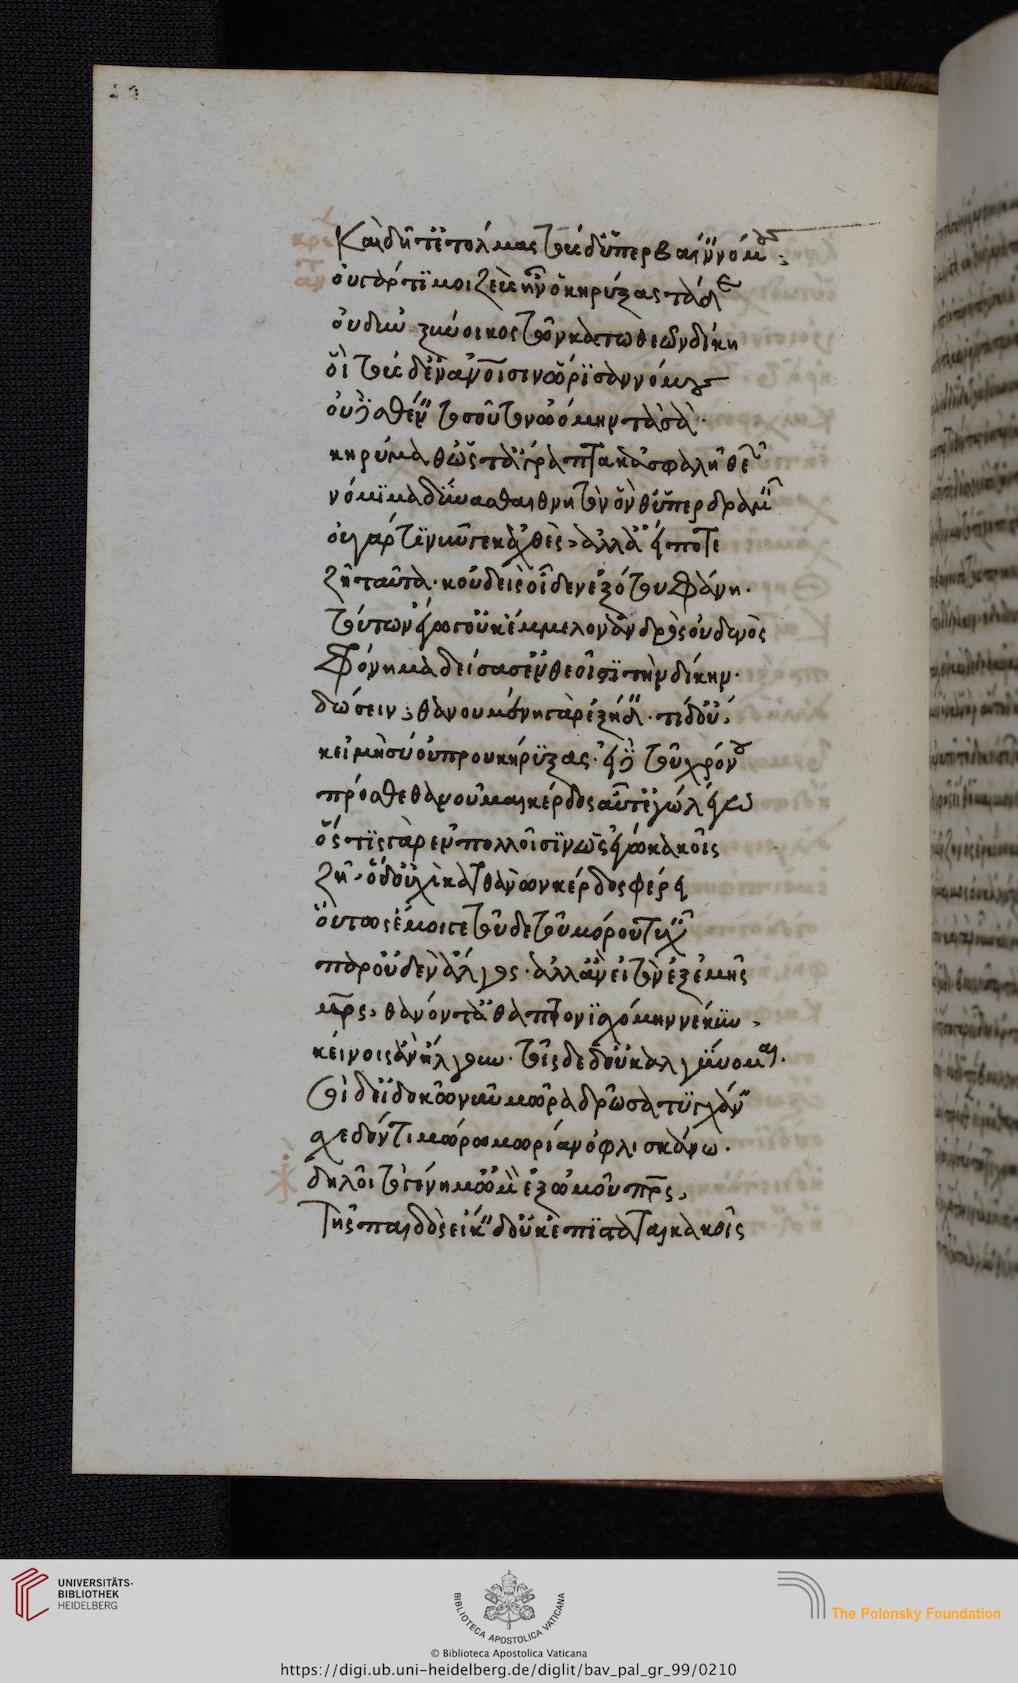 κρε
Καὶ δῆτ' ἐτόλμας τούσδ' ὑπερβαίνειν νόμους;
αν
οὐ γάρ τί μοι Ζεὺς ἦν ὁ κηρύξας τάδε
οὐδ' ἡ ξύνοικος τῶν κάτω θεῶν δίκη
οἳ τούσδ' ἐν ἀνθρώποισιν ὥρισαν νόμους
οὐδὲ σθένειν τοσοῦτον ᾠόμην τὰ σὰ
κηρύγμαθ' ὥστ' ἄγραπτα κἀσφαλῆ θεῶν
νόμιμα δύνασθαι θνητὸν ὄνθ' ὑπερδραμεῖν
οὐ γάρ τι νῦν γε κἀχθὲς, ἀλλ' ἀεί ποτε
ζῇ ταῦτα. κοὐδεὶς οἶδεν ἐξ ὅτου φάνη.
τούτων ἐγὼ οὐκ ἔμελλον ἀνδρὸς οὐδενὸς
φρόνημα δείσασ' ἐν θεοῖσι τὴν δίκην.
δώσειν; θανουμένη γὰρ ἐξῄδειν. τί δ' οὔ;
κεἰ μὴ σὺ προυκήρυξας. εἰ δὲ τοῦ χρόνου
πρόσθε θανοῦμαι κέρδος αὔτ' ἐγὼ λέγω
ὅστις γὰρ ἐν πολλοῖσιν ὡς ἐγὼ κακοῖς
ζῇ. πῶς ὅδ' οὐχὶ κατθανὼν κέρδος φέρει
οὕτως ἔμοιγε τοῦδε τοῦ μόρου τυχεῖν
παρ' οὐδὲν ἄλγος. ἀλλ' ἂν εἰ τὸν ἐξ ἐμῆς
μητρὸς, θανόντ' ἄθαπτον ἰσχόμην νέκυν,
κείνοις ἂν ἤλγουν. τοῖσδε δ' οὐκ ἀλγύνομαι.
σοὶ δ' εἰ δοκῶ νῦν μῶρα δρῶσα τυγχάνειν
σχεδόν τι μώρῳ μωρίαν ὀφλισκάνω.
δηλοῖ τὸ γέννημ' ὠμὸν ἐξ ὠμοῦ πατρὸς,
τῆς παιδὸς εἴκειν δ' οὐκ ἐπίσταται κακοῖς
UNIVERSITÄTS-
BIBLIOTHEK
HEIDELBERG
BIBLIOTECA APOSTOLICA VATICANA
The Polonsky Foundation
© Biblioteca Apostolica Vaticana
https://digi.ub.uni-heidelberg.de/diglit/bav_pal_gr_99/0210